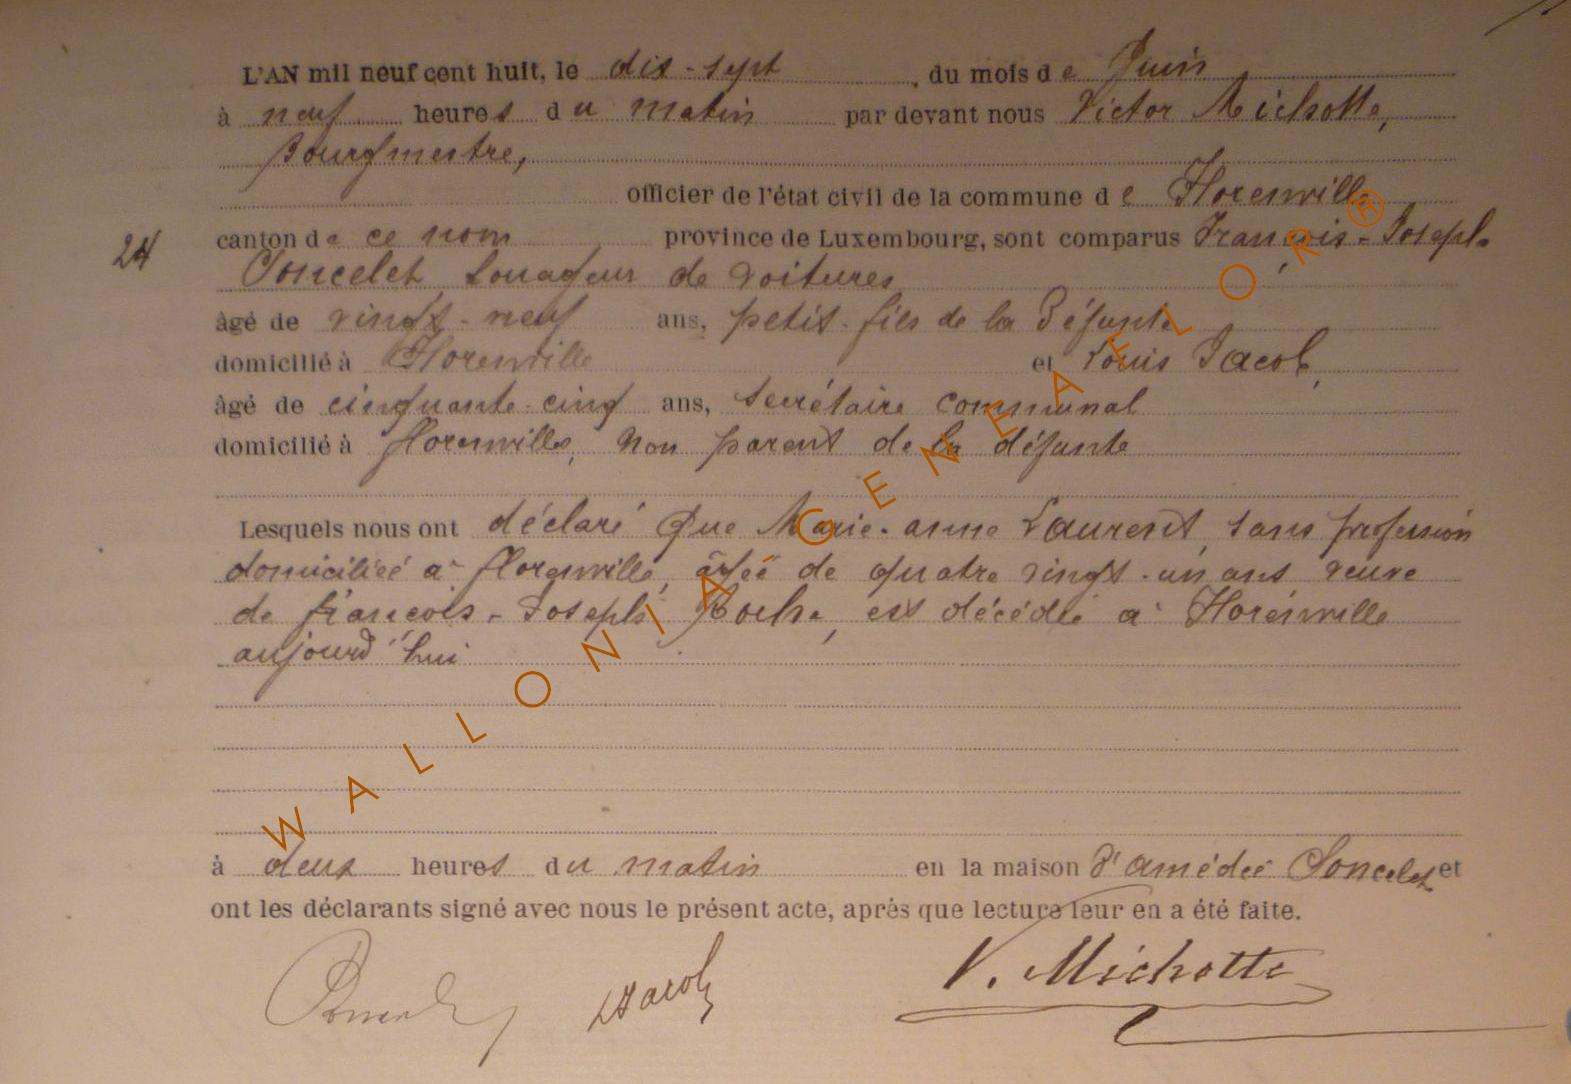 L'AN mil neuf cent huit, le dix-sept, du mois de Juin
à neuf heures du matin par devant nous Victor Michotte,
Bourgmestre,
officier de l'état civil de la commune de Florenville
24 canton de ce nom province de Luxembourg, sont comparus François-Joseph
Poncelet Louageur de voitures
âgé de vingt-neuf ans, petit-fils de la Défunte
domicilié à Florenville et Louis Jacob,
âgé de cinquante-cinq ans, secrétaire communal
domicilié à florenville, non parent de la défunte
Lesquels nous ont déclaré Que Marie-anne Laurent, sans profession
domiciliéé à florenville, âgée de quatre vingt-un ans veuve
de françois-Joseph, est décédée à Florenville
aujourd'hui
à deux heures du matin en la maison d'amédée Poncelet et
ont les déclarants signé avec nous le présent acte, après que lecture leur en a été faite.
LJacob V. Michotte
WALLONIA GENEAFLOR®